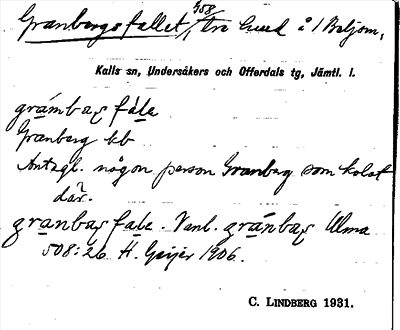 Granbergsfallet,
Kalls sn, Undersåkers och Offerdals tg, Jämtl. l.
grámbas fále
Granberg kb
Antagl. någon person Granberg som kolat
där.
granbas fale. Vanl. gránbas Ulma
508:26 H. Geijer 1906.
C. LINDBERG 1931.